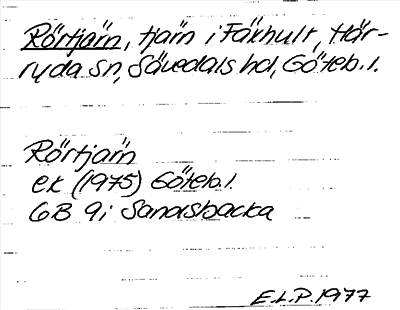 Rörtjärn, tjärn i Fäxhult, Här-
ryda sn, Sävedals hd, Göteb. l.
Rörtjärn
ek (1975) Göteb. l.
6B 9i Sandsbacka
E.L.P. 1977